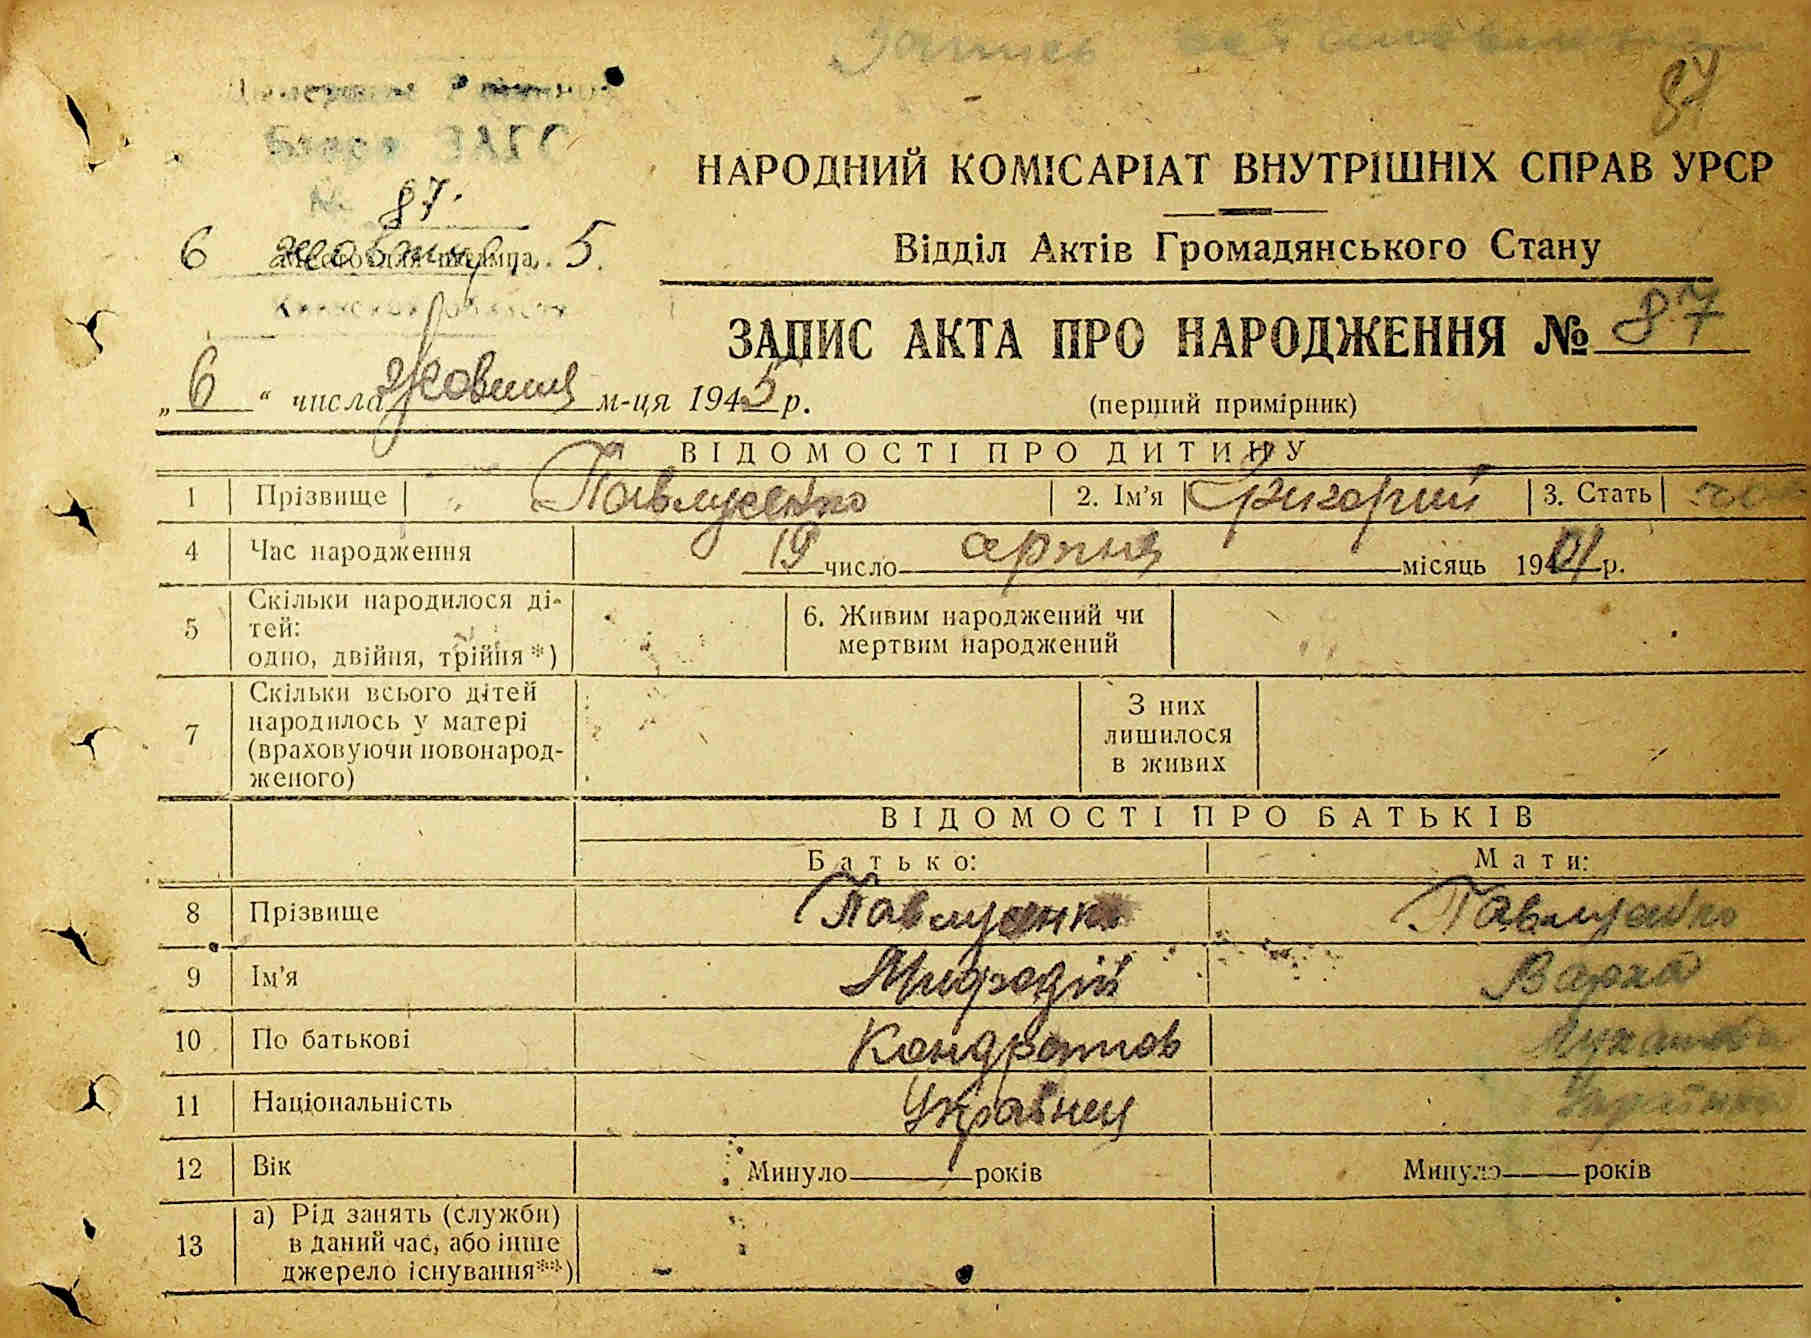 Запись
87
Бюро ЗАГС
№ 87.
6 жовтня 5.
НАРОДНИЙ КОМІСАРІАТ ВНУТРІШНІХ СПРАВ УРСР
Відділ Актів Громадянського Стану
ЗАПИС АКТА ПРО НАРОДЖЕННЯ № 87
„6“ числа Жовтня м-ця 1945 р.
(перший примірник)
ВІДОМОСТІ ПРО ДИТИНУ
1 Прізвище Павлусенко 2. Ім'я Григорий 3. Стать
4 Час народження 19 число арпня місяць 1901 р.
5 Скільки народилося ді-
тей:
одно, двійня, трійня*)
6. Живим народжений чи
мертвим народжений
7 Скільки всього дітей
народилось у матері
(враховуючи новонарод-
женого)
З них
лишилося
в живих
ВІДОМОСТІ ПРО БАТЬКІВ
Батько: Мати:
8 Прізвище Павлусенко Павлусенко
9 Ім'я Мифодій Варка
10 По батькові Кондратов
11 Національність Украінец Українка
12 Вік Минуло років Минуло років
13 а) Рід занять (служби)
в даний час, або інше
джерело існування**)